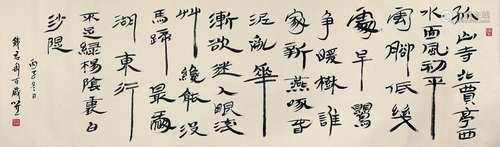 孤山寺北賈亭西
水面初平
雲腳低幾
處早鶯
爭暖樹誰
家新燕啄春
泥亂華
漸欲迷人眼淺
艸纔能沒
馬蹄最愛
湖東行
不足綠楊陰裏白
沙隄
丙子冬日